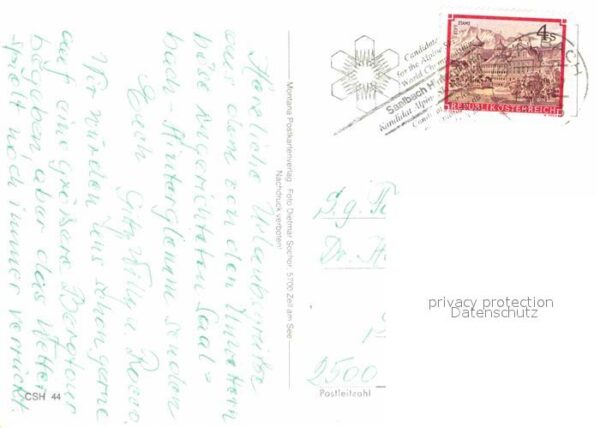 Herzliche Urlaubsgrüße
aus dem von den Unwettern
böse zugerichteten Saal-
bach-Hinterglemm senden
Euch Gitz Willy u
Wir würden uns schon gerne
auf eine größere Bergtour
begeben aber das Wetter
spielt noch immer verrückt.
CSH 44
Montana Postkartenverlag Foto Dietmar Sochor, 5700 Zell am See
Nachdruck verboten!
Candidate
for the Alpine
World
Saalbach
Kandidat Alpin
STAMS
4 S
REPUBLIK ÖSTERREICH
S.g.
Dr.
2500
Postleitzahl
privacy protection
Datenschutz